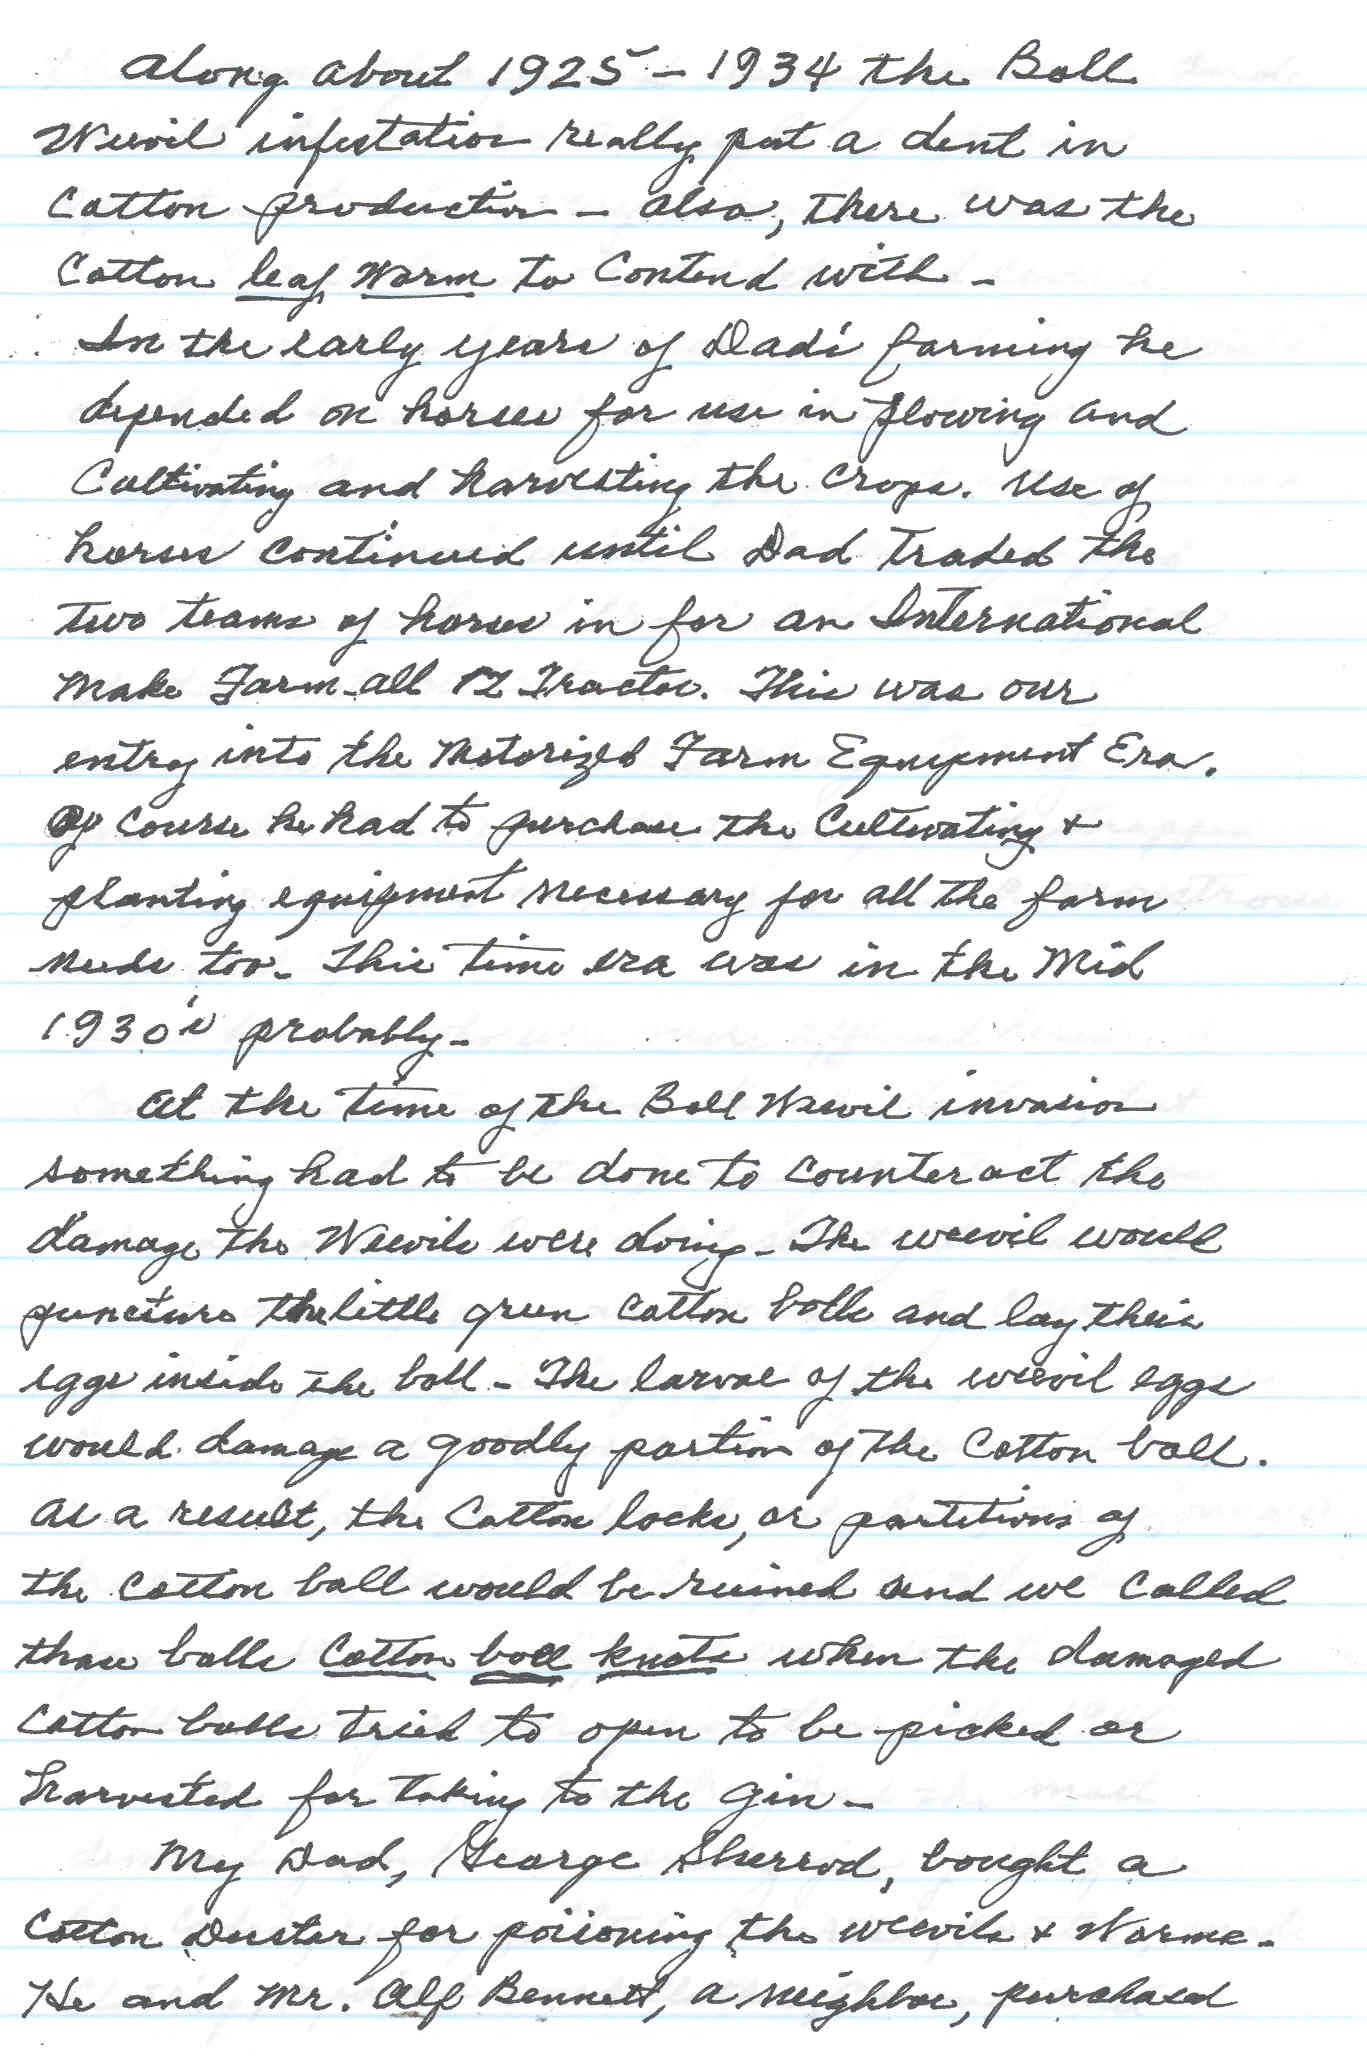 Along about 1925 - 1934 the Boll
Weevil infestation really put a dent in
Cotton production - also, there was the
Cotton leaf worm to Contend with -
In the early years of Dad's farming he
depended on horses for use in plowing and
Cultivating and harvesting the crops. Use of
horses continued until Dad traded the
two teams of horses in for an International
Make Farm-all 12 Tractor. This was our
entry into the Motorized Farm Equipment Era.
Of course he had to purchase the Cultivating +
planting equipment necessary for all the farm
needs too - This time era was in the Mid
1930's probably -
At the time of the Boll Weevil invasion
something had to be done to counteract the
damage the Weevils were doing - The weevil would
puncture the little green cotton bolls and lay their
eggs inside the boll - The larvae of the weevil eggs
would damage a goodly portion of the Cotton boll.
As a result, the Cotton locks, or partitions of
the cotton boll would be ruined and we called
those bolls Cotton boll knots when the damaged
Cotton bolls tried to open to be picked or
harvested for taking to the Gin -
My Dad, George Sherrod, bought a
Cotton Duster for poisoning the weevils + Worms -
He and Mr. Alf Bennett, a neighbor, purchased